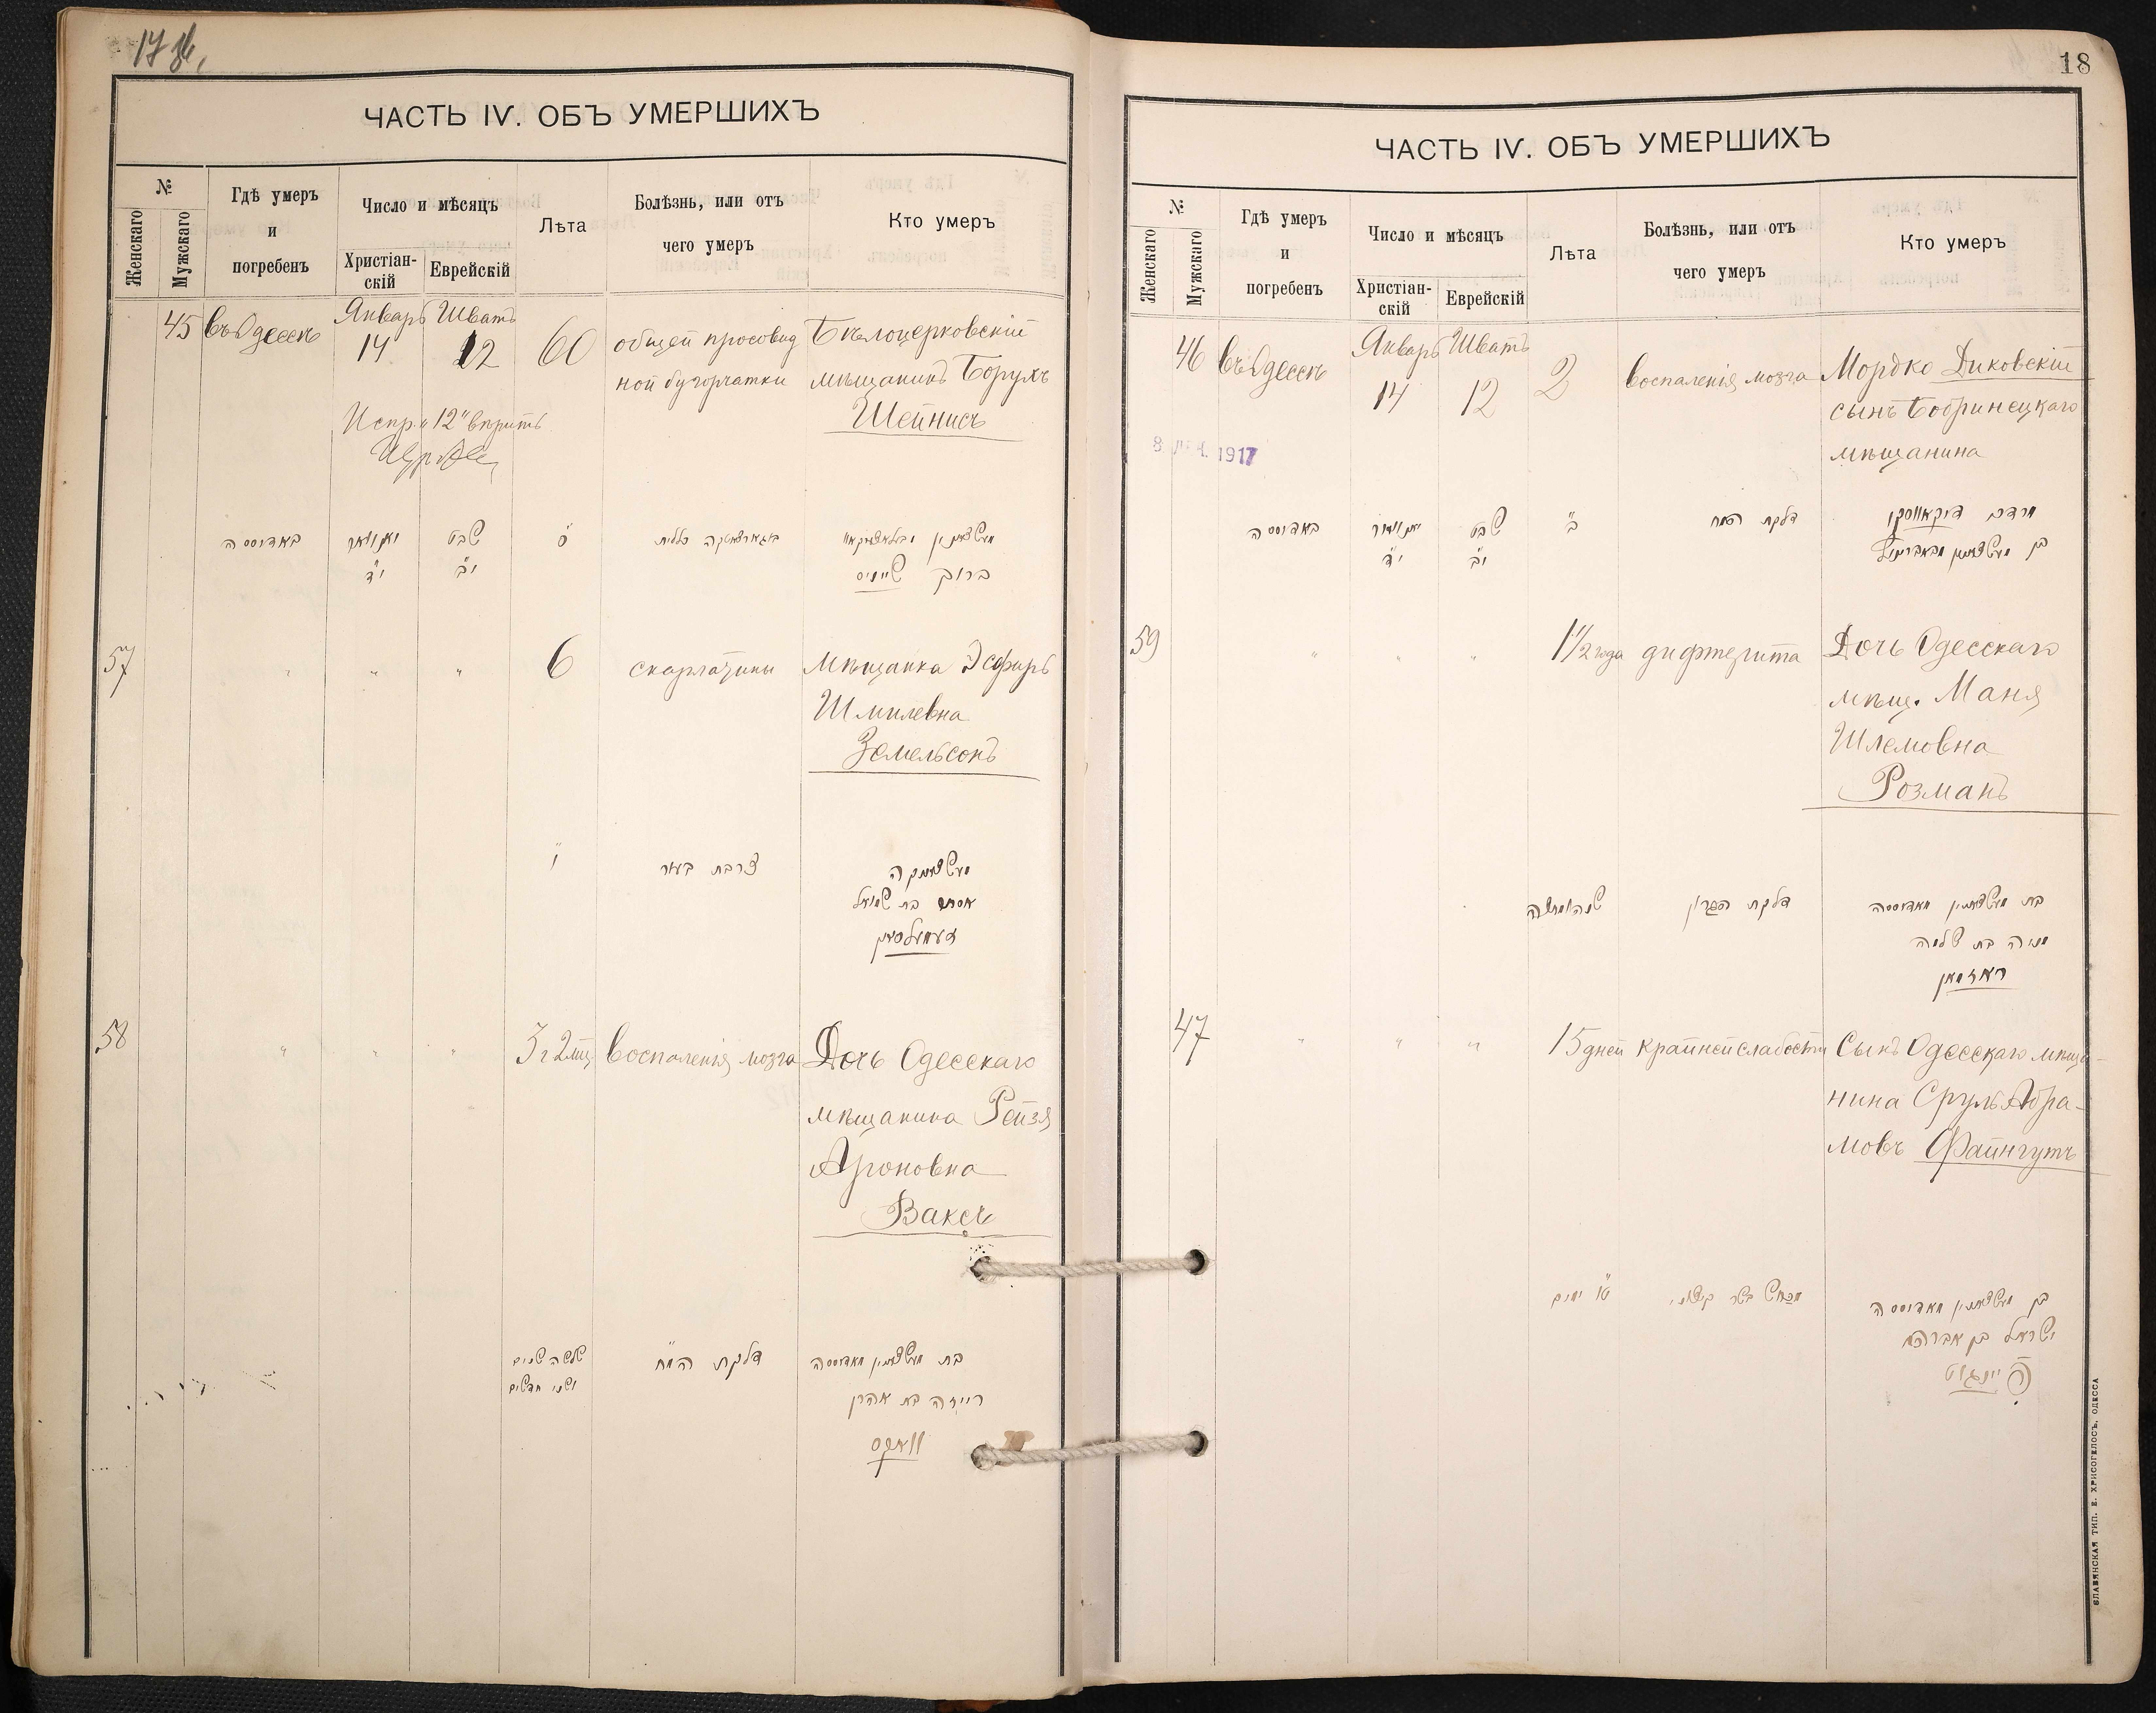 ЧАСТЬ IV. ОБЪ УМЕРШИХЪ
№
Женскаго
Мужскаго
Гдѣ умеръ
и
погребенъ
Число и мѣсяцъ
Христіан-
скій
Еврейскій
Лѣта
Болѣзнь, или отъ
чего умеръ
Кто умеръ
45
въ Одессѣ
Январь
14
Шватъ
12
60
общей просовид
ной бугорчатки
Бѣлоцерковскій
мѣщанинъ Борухъ
Шейнисъ
Испр. "12" вѣрить
באדוססה
יאנוואר
י״ד
שבט
י״ב
ס
ברוך שייניס
57
"
"
"
6
скарлатины
Мѣщанка Эсфирь
Шмилевна
Земельсонъ
ו
אסתר בת שמואל
זעמעלסאן
58
"
"
"
3 г 2 мц
воспаленія мозга
Дочь Одесскаго
мѣщанина Рейзя
Ароновна
Ваксъ
שלשה שנים
ושני חדשים
דלקת המח
בת מעשצאנין מאדוססה
רייזה בת אהרן
וואקס
18
ЧАСТЬ IV. ОБЪ УМЕРШИХЪ
№
Женскаго
Мужскаго
Гдѣ умеръ
и
погребенъ
Число и мѣсяцъ
Христіан-
скій
Еврейскій
Лѣта
Болѣзнь, или отъ
чего умеръ
Кто умеръ
46
въ Одессѣ
Январь
14
Шватъ
12
2
воспаленія мозга
Мордко Диковскій
сынъ Бобринецкаго
мѣщанина
1917
באדוססה
יאנוואר
י״ד
שבט
י״ב
ב
דלקת המח
מרדכי דיקאווסקי
59
"
"
"
1 1/2 года
дифтерита
Дочь Одесскаго
мѣщ. Маня
Шлемовна
Розманъ
דלקת הגרון
בת מעשצאנין מאדוססה
מניה בת שלמה
ראזמאן
47
"
"
"
15 дней
крайней слабости
Сынъ Одесскаго мѣща-
нина Сруль Абра-
мовъ Файнгутъ
ט״ו ימים
בן מעשצאנין מאדוססה
ישראל בן אברהם
פיינגוט
СЛАВЯНСКАЯ ТИП. Е. ХРИСОГЕЛОСЪ, ОДЕССА